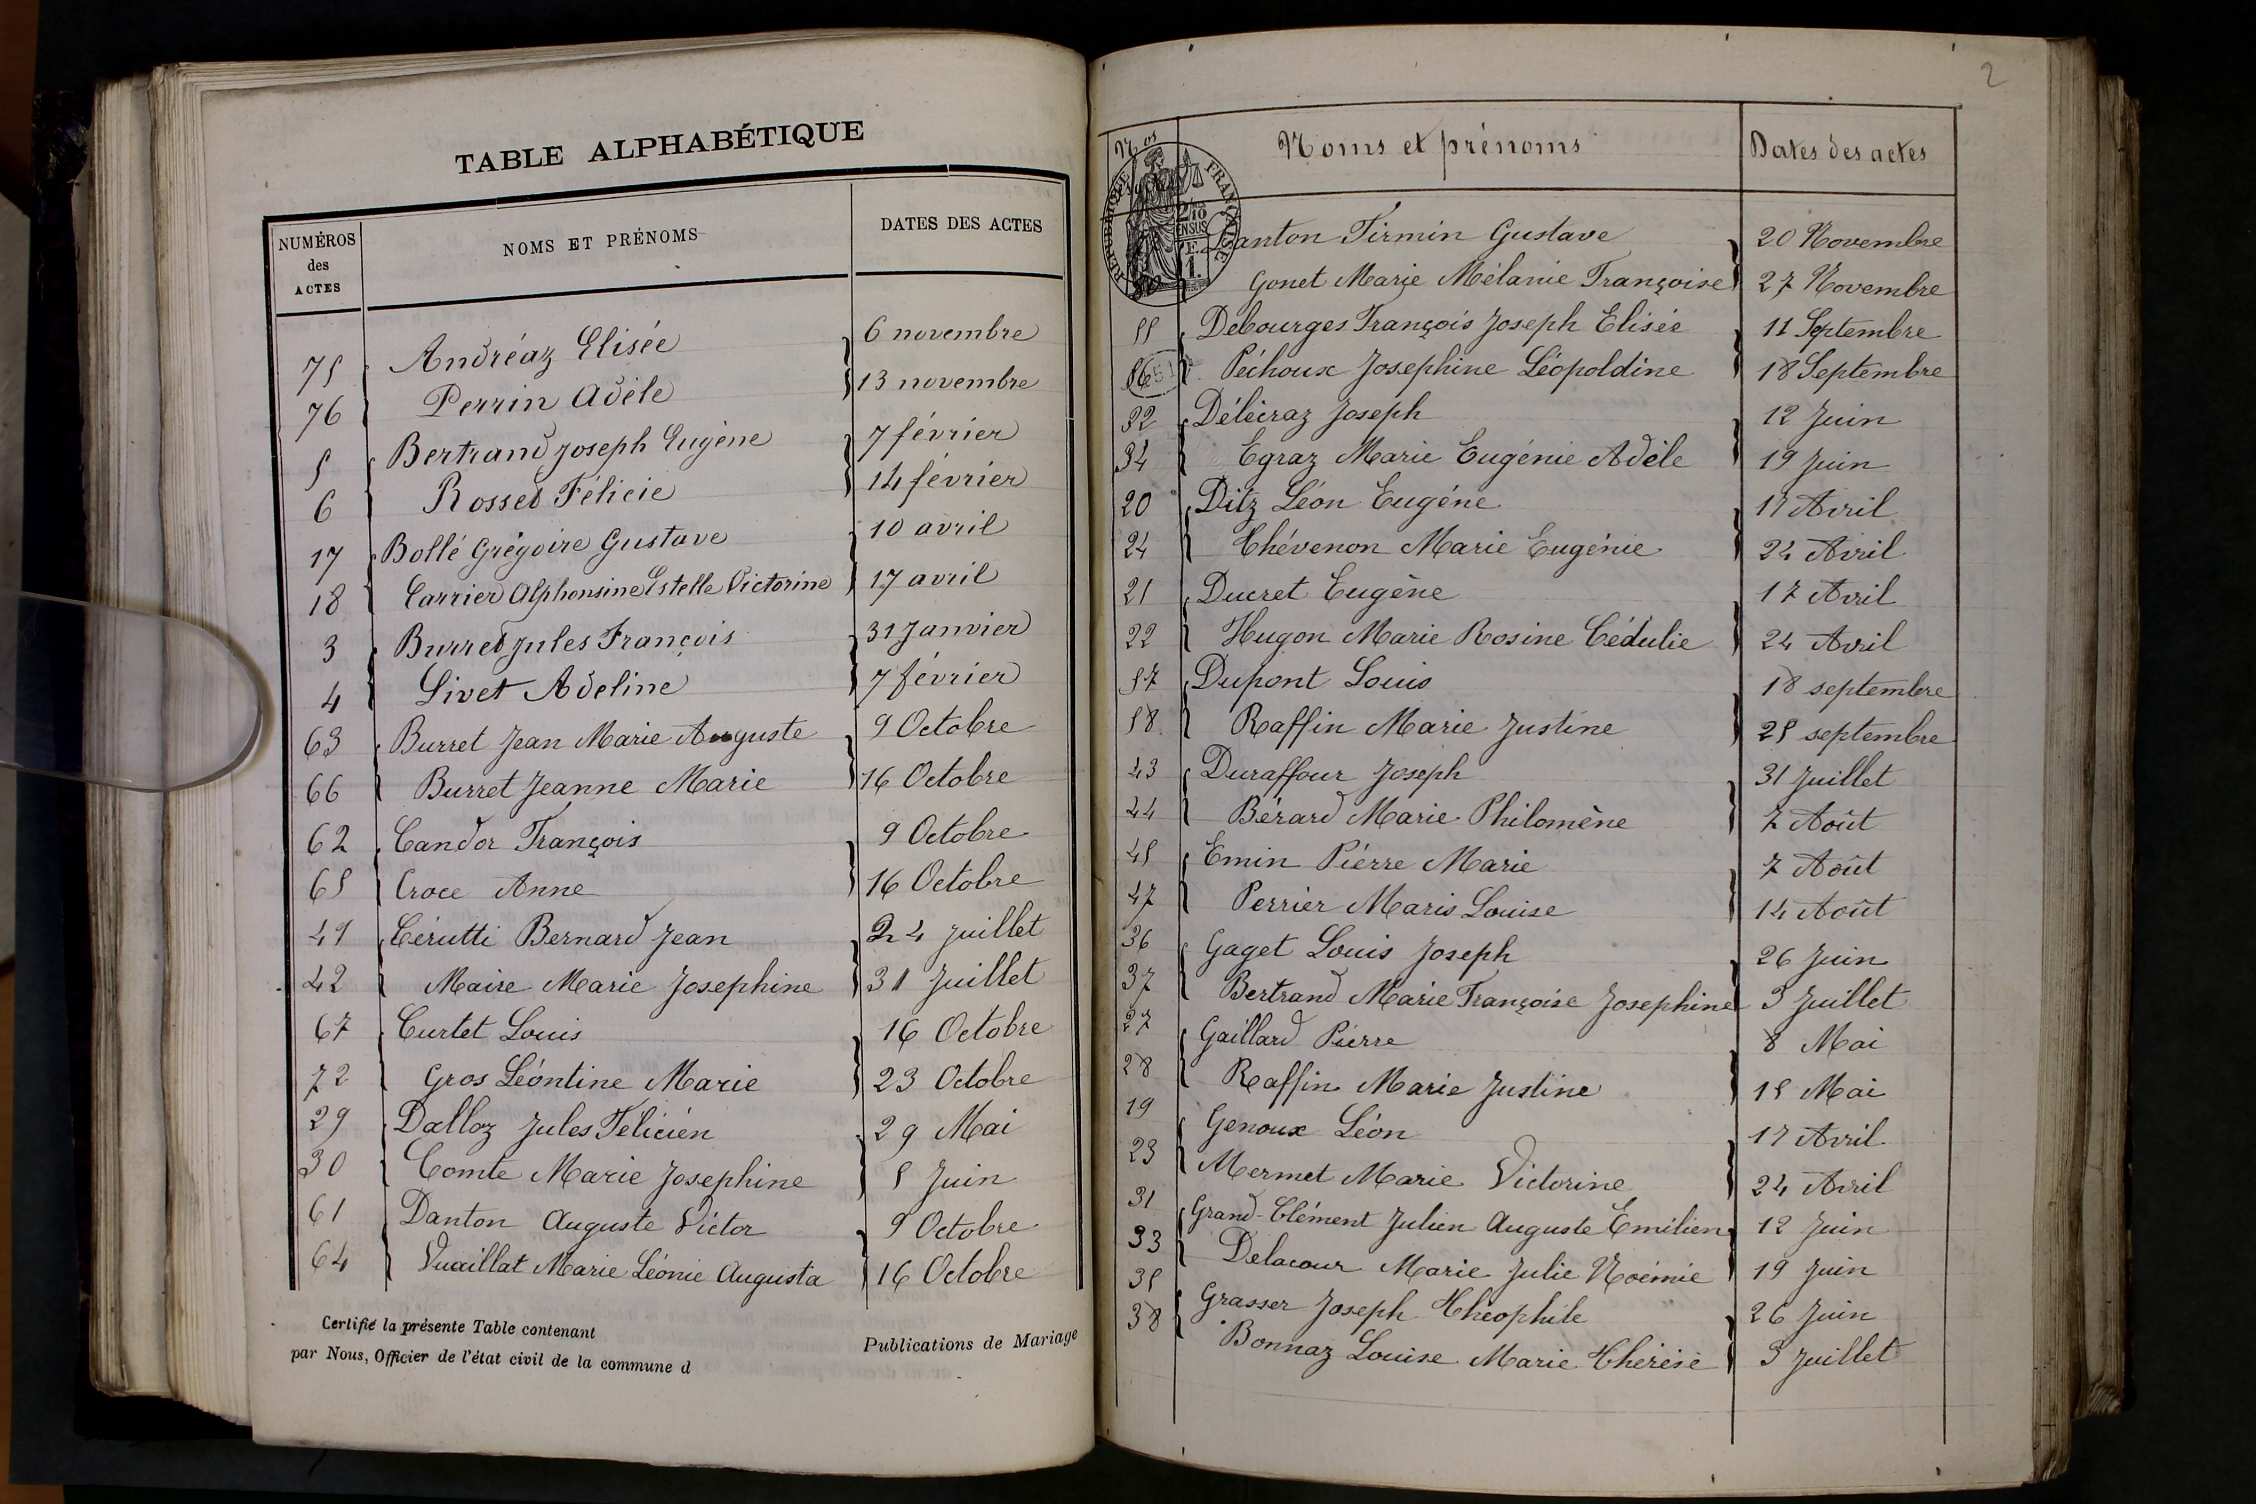 TABLE ALPHABÉTIQUE
NUMÉROS des ACTES NOMS ET PRÉNOMS DATES DES ACTES
75 Andréaz Elisée 6 novembre
76 Perrin Adèle 13 novembre
5 Bertrand Joseph Eugène 7 février
6 Rosset Félicie 14 février
17 Bollé Grégoire Gustave 10 avril
18 Carrier Alphonsine Estelle Victorine 17 avril
3 Burret Jules François 31 Janvier
4 Livet Adeline 7 février
63 Burret Jean Marie Auguste 9 Octobre
66 Burret Jeanne Marie 16 Octobre
62 Candor François 9 Octobre
65 Croce Anne 16 Octobre
41 Cérutti Bernard Jean 24 Juillet
42 Maire Marie Josephine 31 Juillet
67 Curtet Louis 16 Octobre
72 Gros Léontine Marie 23 Octobre
29 Dalloz Jules Félicien 29 Mai
30 Comte Marie Josephine 5 Juin
61 Danton Auguste Victor 9 Octobre
64 Vuaillat Marie Léonie Augusta 16 Octobre
Certifié la présente Table contenant Publications de Mariage
par Nous, Officier de l'état civil de la commune d
2
Nos Noms et prénoms Dates des actes
RÉPUBLIQUE FRANÇAISE
2/10 EN SUS
1 F.
Danton Firmin Gustave 20 Novembre
80 Gonet Marie Mélanie Françoise 27 Novembre
55 Debourges François Joseph Elisée 11 Septembre
56 Péchoux Josephine Léopoldine 18 Septembre
32 Déléiraz Joseph 12 Juin
34 Egraz Marie Eugénie Adèle 19 Juin
20 Ditz Léon Eugène 17 Avril
24 Chévenon Marie Eugénie 24 Avril
21 Ducret Eugène 17 Avril
22 Hugon Marie Rosine Cédulie 24 Avril
57 Dupont Louis 18 septembre
58 Raffin Marie Justine 25 septembre
43 Duraffour Joseph 31 Juillet
44 Bérard Marie Philomène 7 Août
45 Emin Pierre Marie 7 Août
47 Perrier Maris Louise 14 Août
36 Gaget Louis Joseph 26 Juin
37 Bertrand Marie Françoise Josephine 3 Juillet
27 Gaillard Pierre 8 Mai
28 Raffin Marie Justine 15 Mai
19 Genoux Léon 17 Avril
23 Mermet Marie Victorine 24 Avril
31 Grand-Clément Julien Auguste Emilien 12 Juin
33 Delacour Marie Julie Noémie 19 Juin
35 Grasser Joseph Théophile 26 Juin
38 Bonnaz Louise Marie Thérèse 3 Juillet